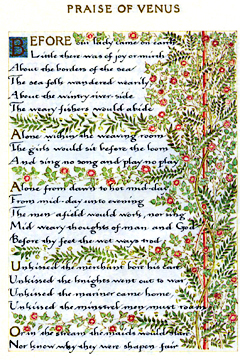 PRAISE OF VENUS
BEFORE our lady came on earth
Little there was of joy or mirth
About the borders of the sea
The sea-folk wandered heavily,
About the wintry river side
The weary fishers would abide
Alone within the weaving room
The girls would sit before the loom
And sing no song and play no play
Alone from dawn to hot mid-day
From mid-day unto evening
The men afield would work, nor sing
Mid weary thoughts of man and God
Before thy feet the wet ways trod
Unkissed the merchant bore his care
Unkissed the knights went out to war
Unkissed the mariner came home,
Unkissed the minstrel men must roam
Or in the stream the maids would stare
Nor know why they were shapen fair